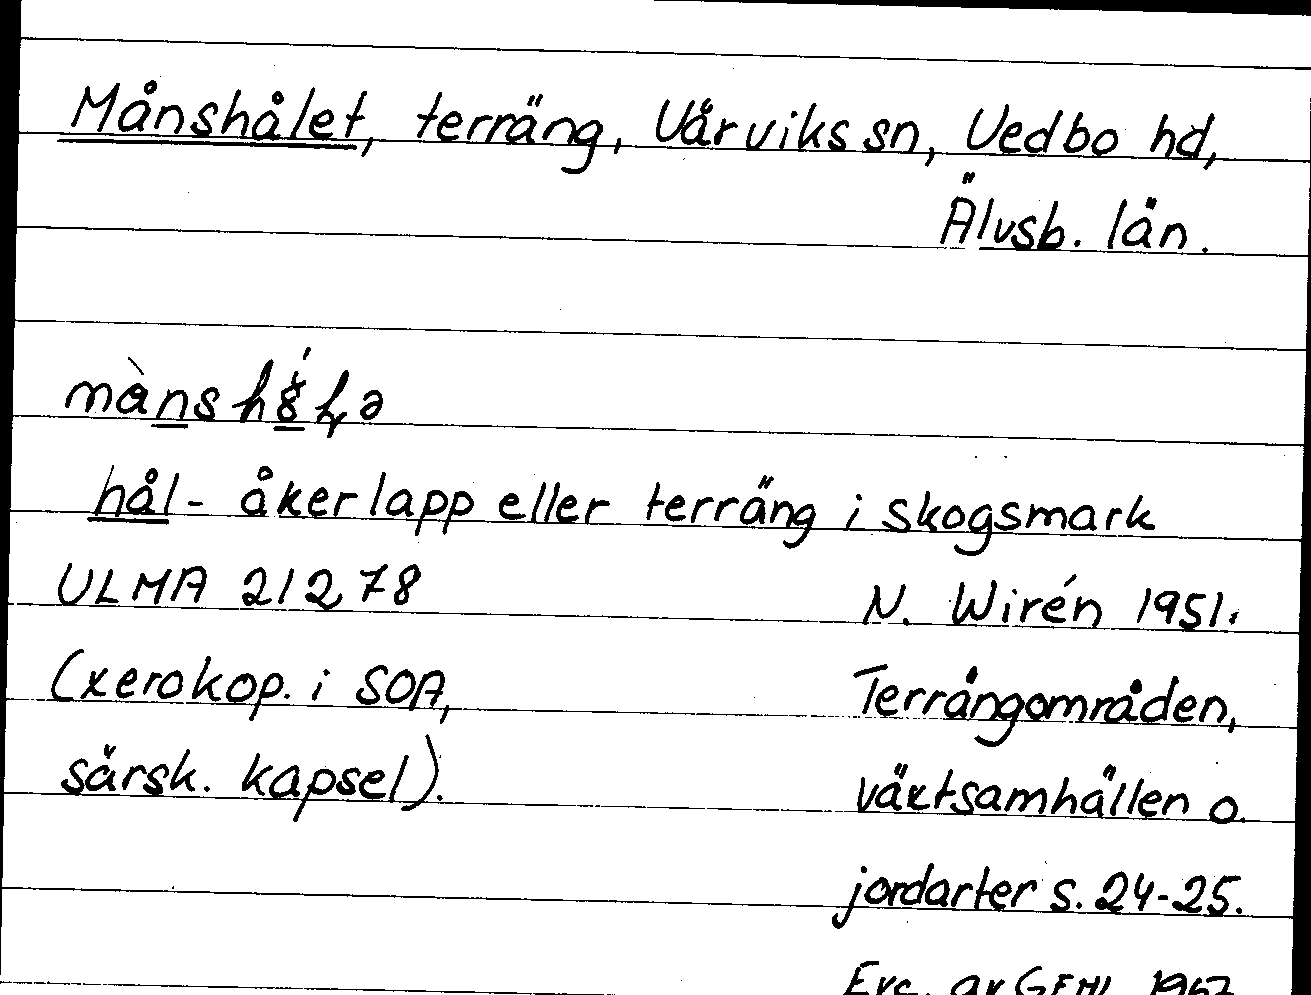 Månshålet, terräng, Vårviks sn, Vedbo hd,
Älvsb. län.
hål- åkerlapp eller terräng i skogsmark
ULMA 21278 N. Wirén 1951.
(xerokop. i SOA, Terrängområden,
särsk. kapsel). växtsamhällen o.
jordarter s. 24-25.
Exc. av 1967